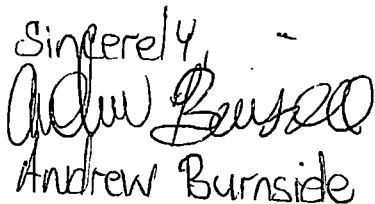 Sincerely,
Andrew Burnside
Andrew Burnside